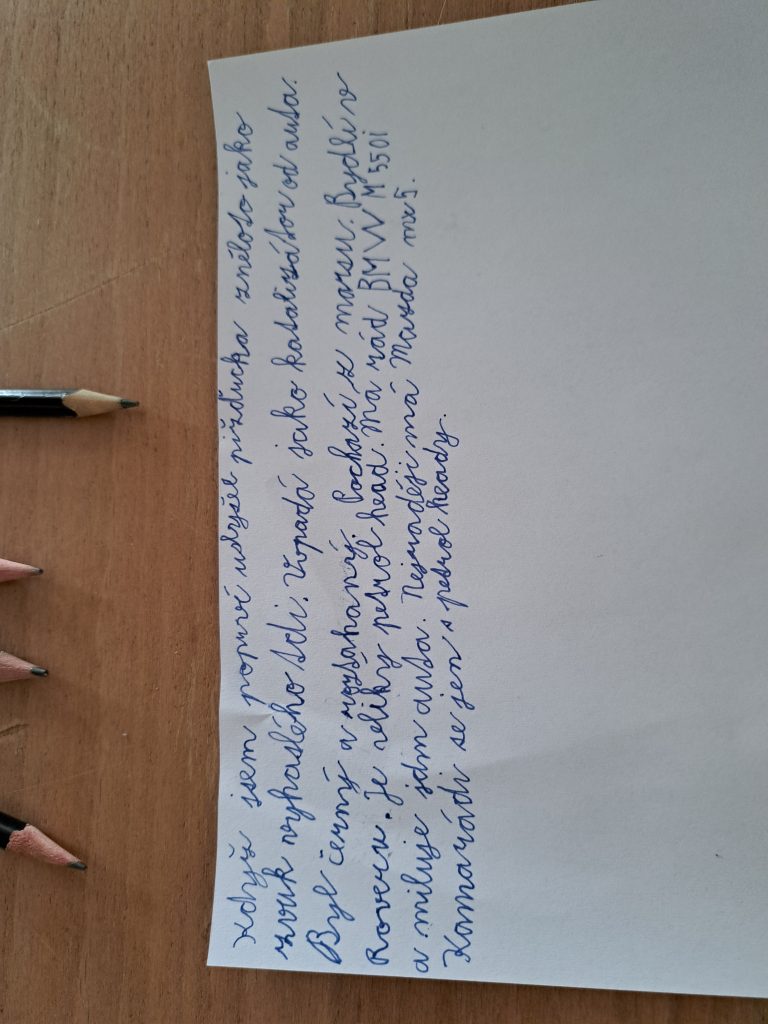 Když jsem poprvé uslyšel pižďucha znělo to jako
zvuk vyhaslého tdi. Vypadá jako katalizátor od auta.
Byl černý a roztahaný. Pochází z marsu. Bydlí v
Roveru. Je veliký petrol head. Má rád BMW M 550i
a miluje sám auta. Nejraději má Mazda mx5.
Kamarádi se jen s petrol heady.